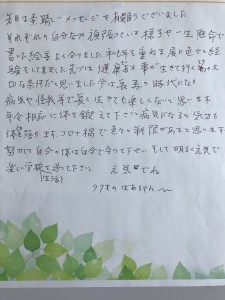 先日は素晴しいメッセージを有難うございました
それぞれの自分なりに頑張っている様子や一生懸命
書いた絵手よく分りました 私も年を重ねる度色々と経
験をしてきました 先づは健康な事が生きて行く第一の大
切な条件だと思いました 今は長寿の時代になり
病気で何年も長く生きても楽しくないと思います
年令相応に体を鍛えて下さい 病気になると気力も
体力も落ちます コロナ禍で色々制限があると思いますが
努力して自分の体は自分で守って下さい そして明るく元気で
楽しい学校生活を送って下さい
元気でね
97才のばあちゃん